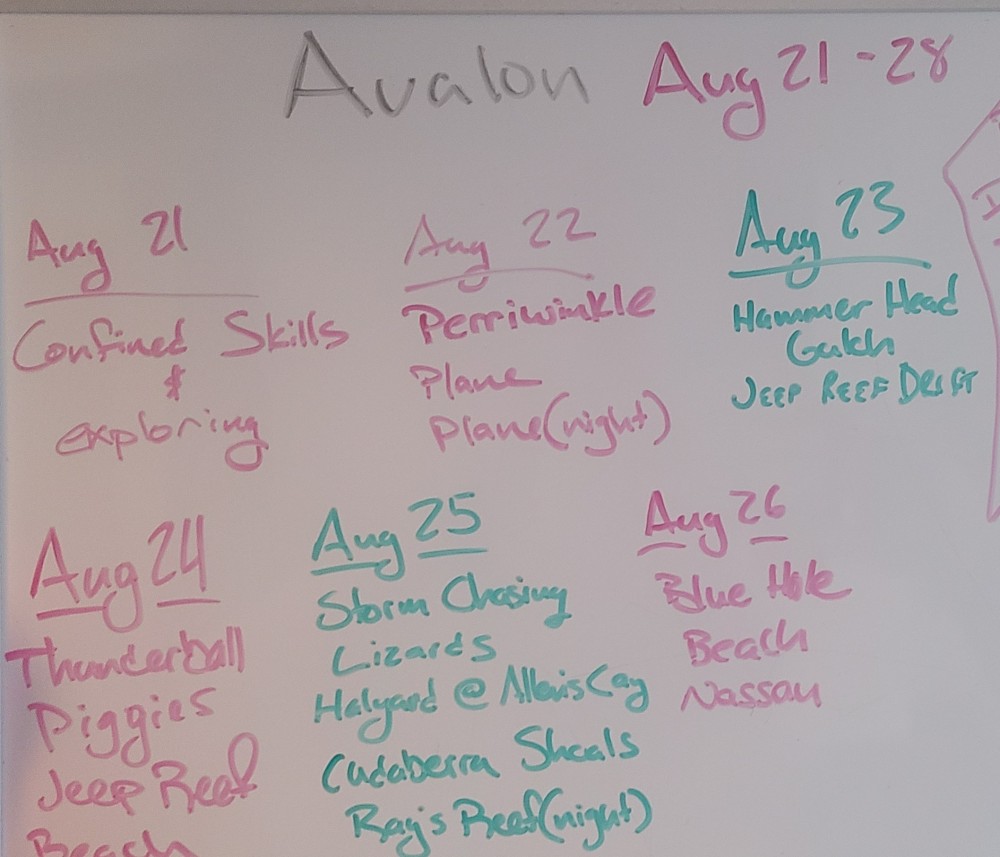 Avalon Aug 21-28
Aug 21
Confined Skills
&
exploring
Aug 22
Perriwinkle
Plane
Plane(night)
Aug 23
Hammer Head
Gulch
JEEP REEF DRIFT
Aug 24
Thunderball
Piggies
Jeep Reef
Beach
Aug 25
Storm Chasing
Lizards
Halyard @ Allens Cay
Cudaberra Shoals
Ray's Reef(night)
Aug 26
Blue Hole
Beach
Nassau